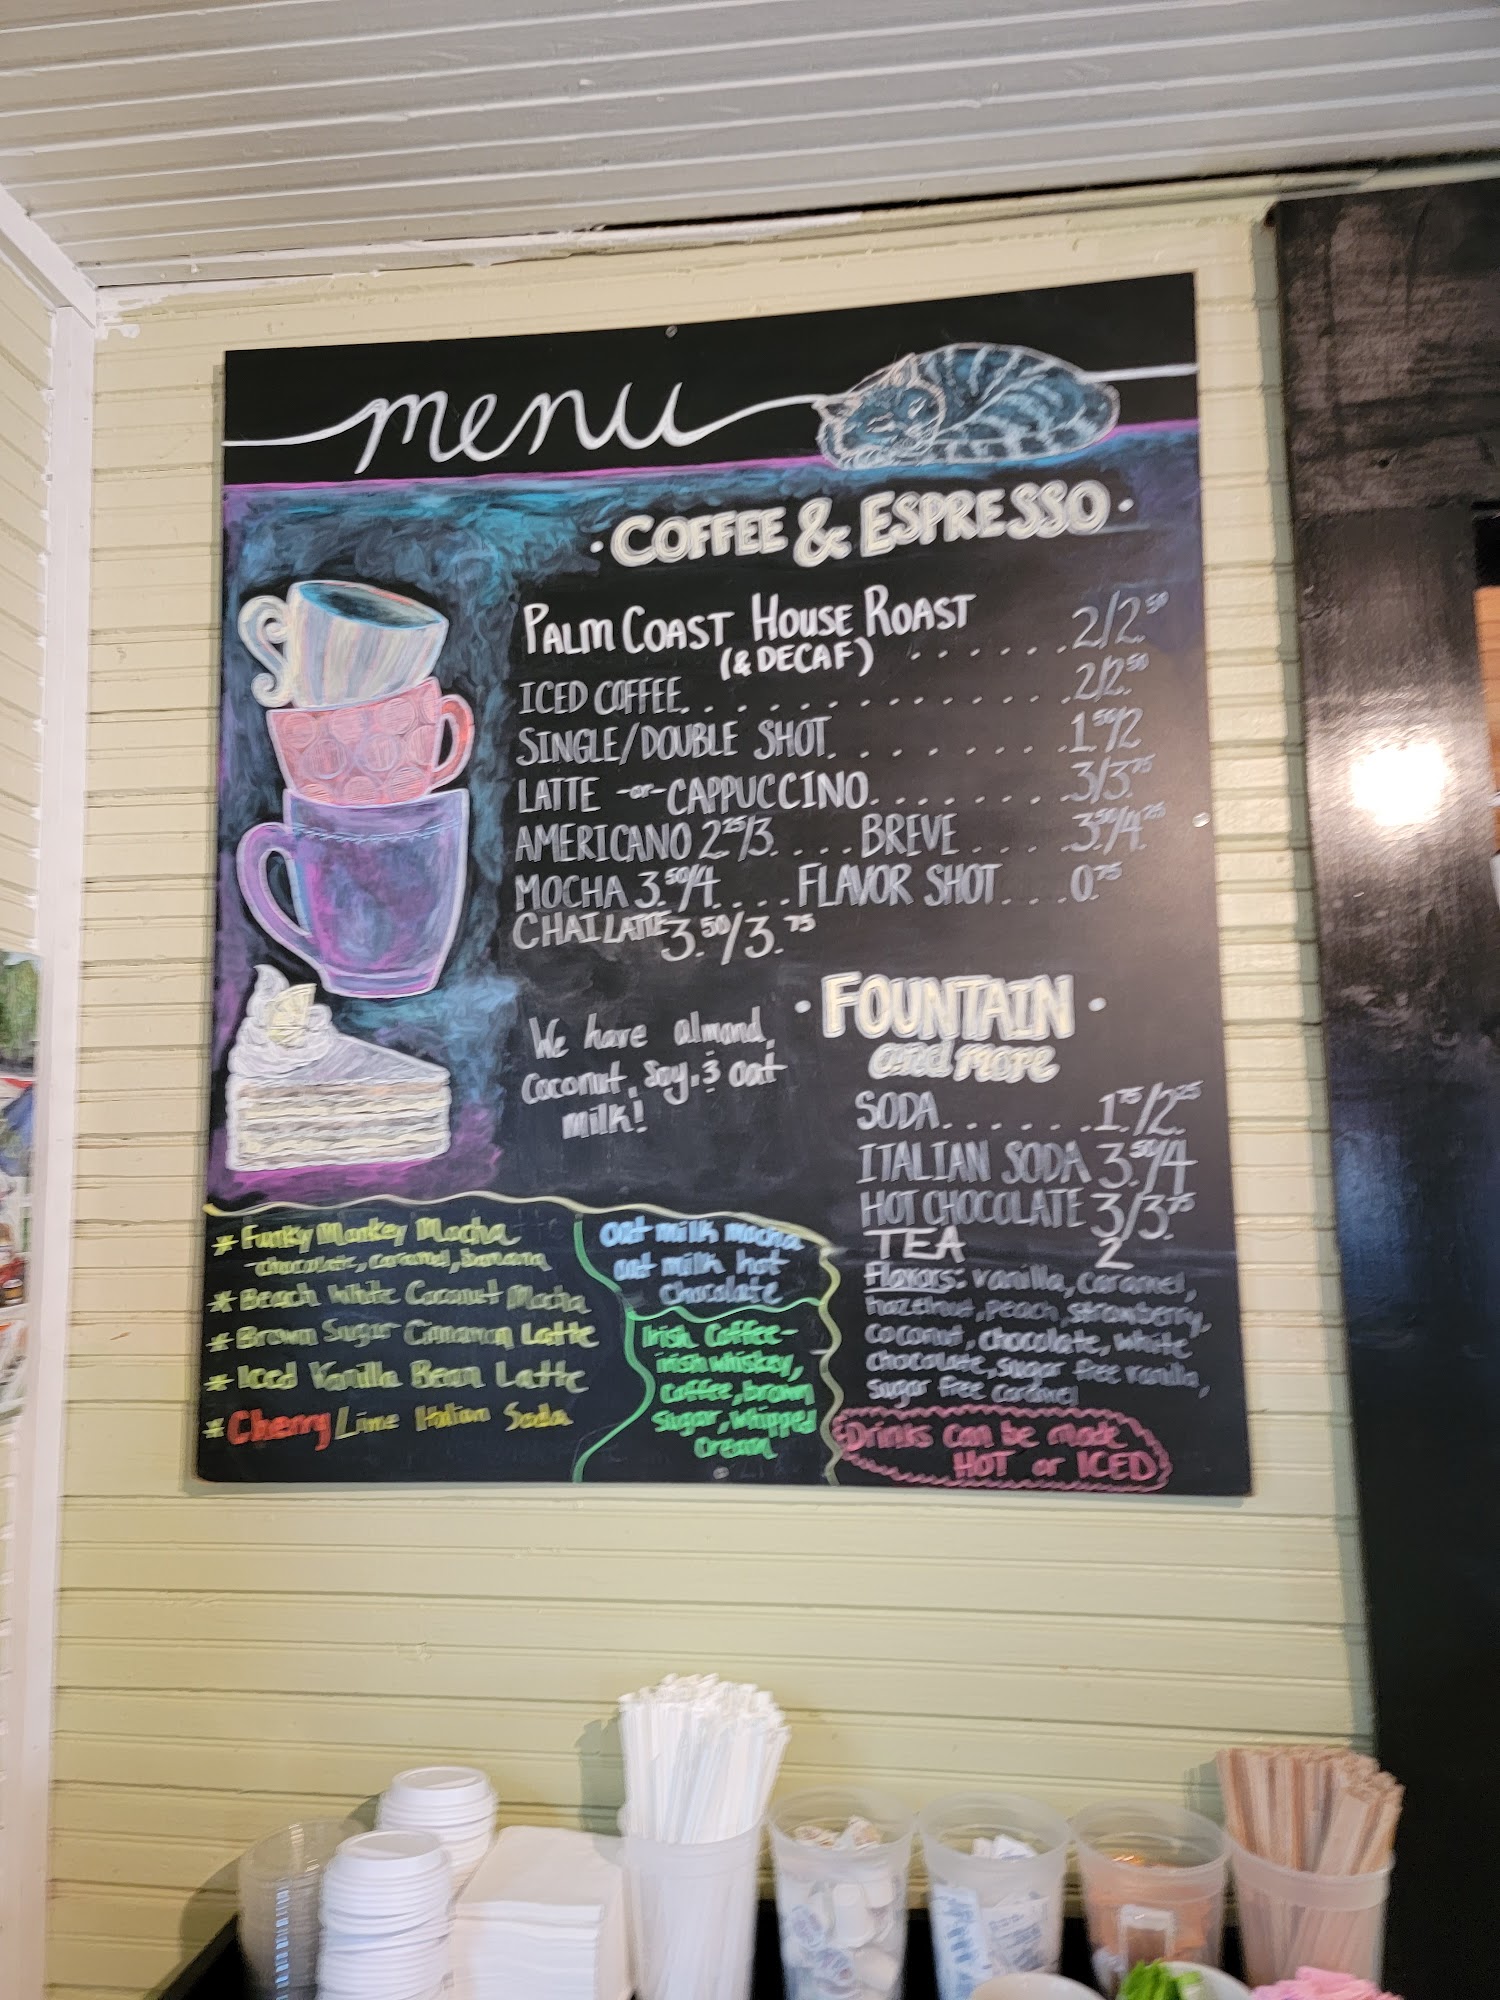 menu
· COFFEE & ESPRESSO ·
PALM COAST HOUSE ROAST
(& DECAF) . . . . . . 2/2.50
ICED COFFEE. . . . . . . . . . . . . . 2/2.50
SINGLE/DOUBLE SHOT. . . . . . . . 1.50/2
LATTE -or- CAPPUCCINO. . . . . . . . 3/3.75
AMERICANO 2.25/3. . . . . BREVE . . . . 3.50/4.25
MOCHA 3.50/4. . . . . FLAVOR SHOT. . . . 0.75
CHAI LATTE 3.50/3.75
We have almond,
Coconut, Soy, & oat
milk!
· FOUNTAIN ·
and more
SODA. . . . . . 1.75/2.25
ITALIAN SODA 3.50/4
HOT CHOCOLATE 3/3.75
TEA 2
Flavors: vanilla, caramel,
hazelnut, peach, strawberry,
coconut, chocolate, white
chocolate, sugar free vanilla,
sugar free caramel
Drinks can be made
HOT or ICED
* Funky Monkey Mocha
- chocolate, caramel, banana
* Beach White Coconut Mocha
* Brown Sugar Cinnamon Latte
* Iced Vanilla Bean Latte
* Cherry/Lime Italian Soda
oat milk mocha
oat milk hot
chocolate
Irish Coffee-
irish whiskey,
coffee, brown
sugar, whipped
cream